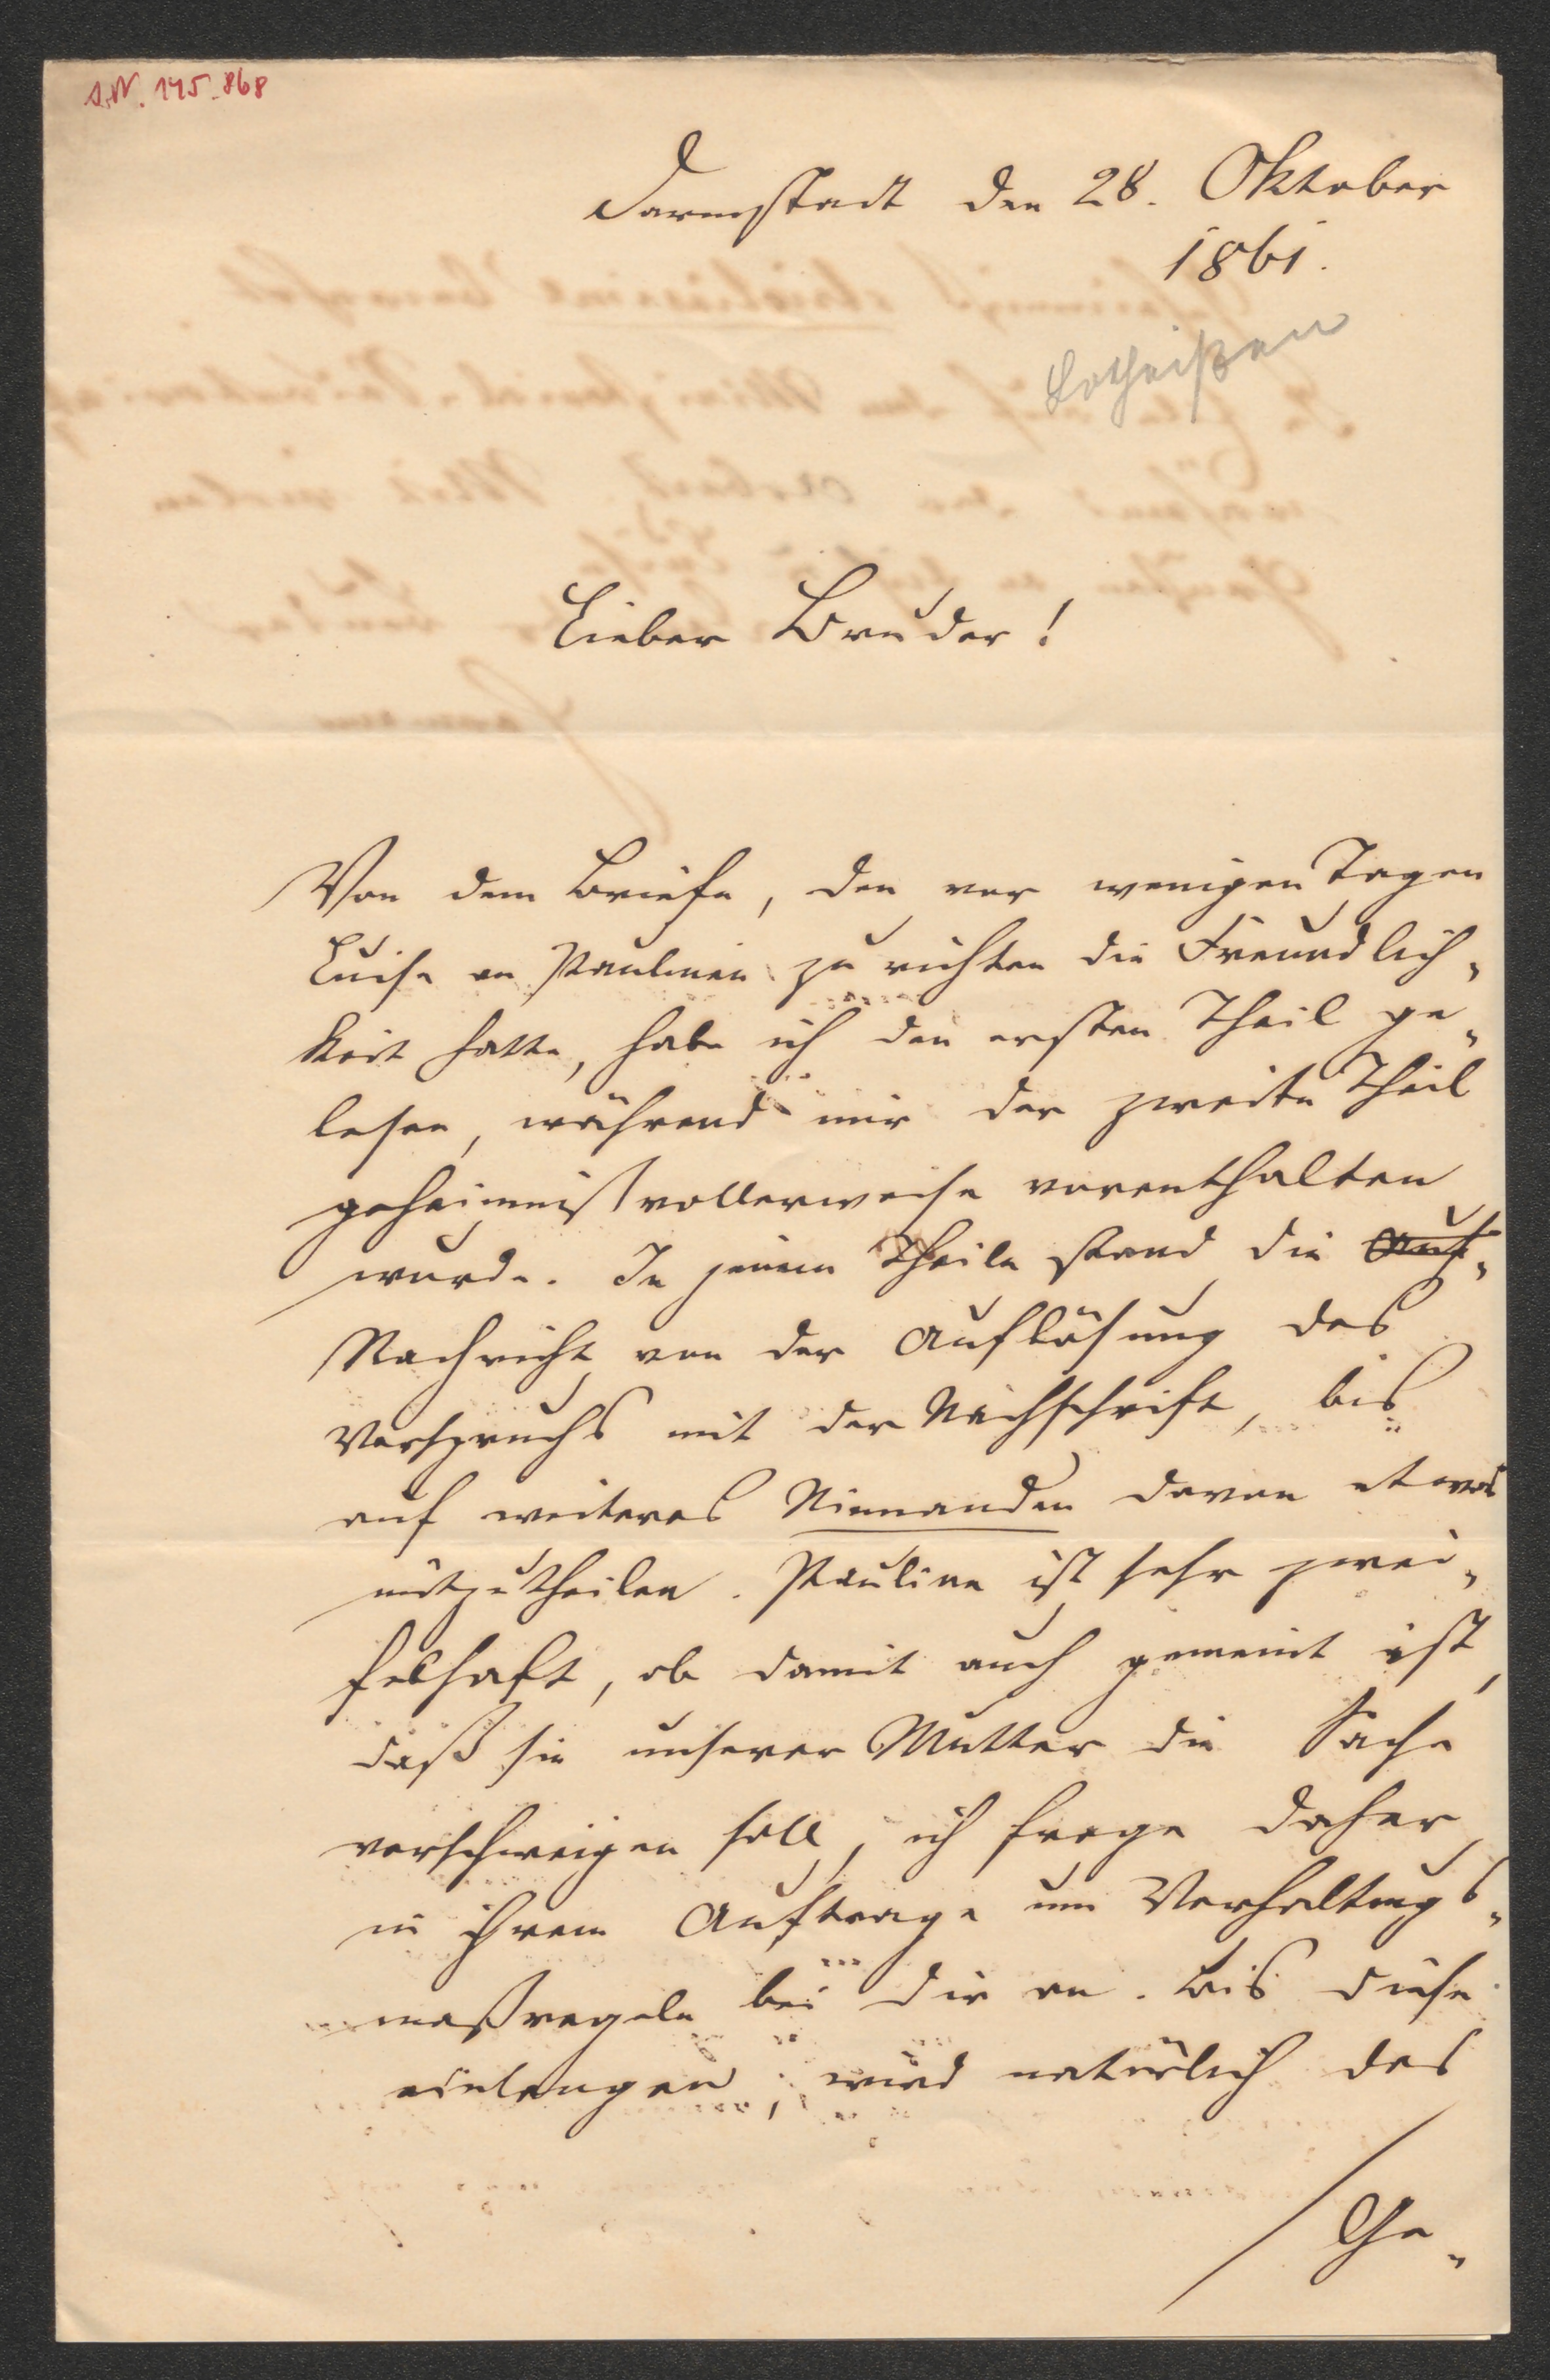 I.N. 145.868
Darmstadt den 28. Oktober
1861.
Lotheißen
Lieber Bruder!
Von dem Briefe, den vor wenigen Tagen
Luise an Paulinen zu richten die Freundlich-
keit hatte, habe ich den ersten Theil ge-
lesen, während mir der zweite Theil
geheimnißvollerweise vorenthalten
wurde. In jenem Theile stand die Auf-
Nachricht von der Auflösung des
Verspruchs mit der Nachschrift, bis
auf weiteres Niemanden davon etwas
mitzutheilen. Pauline ist sehr zwei-
felhaft, ob damit auch gemeint ist,
daß sie unserer Mutter die Sache
verschweigen soll, ich frage daher
in ihrem Auftrage um Verhaltungs-
maßregeln bei dir an. Bis diese
einlangen, wird natürlich das
/ Ge-